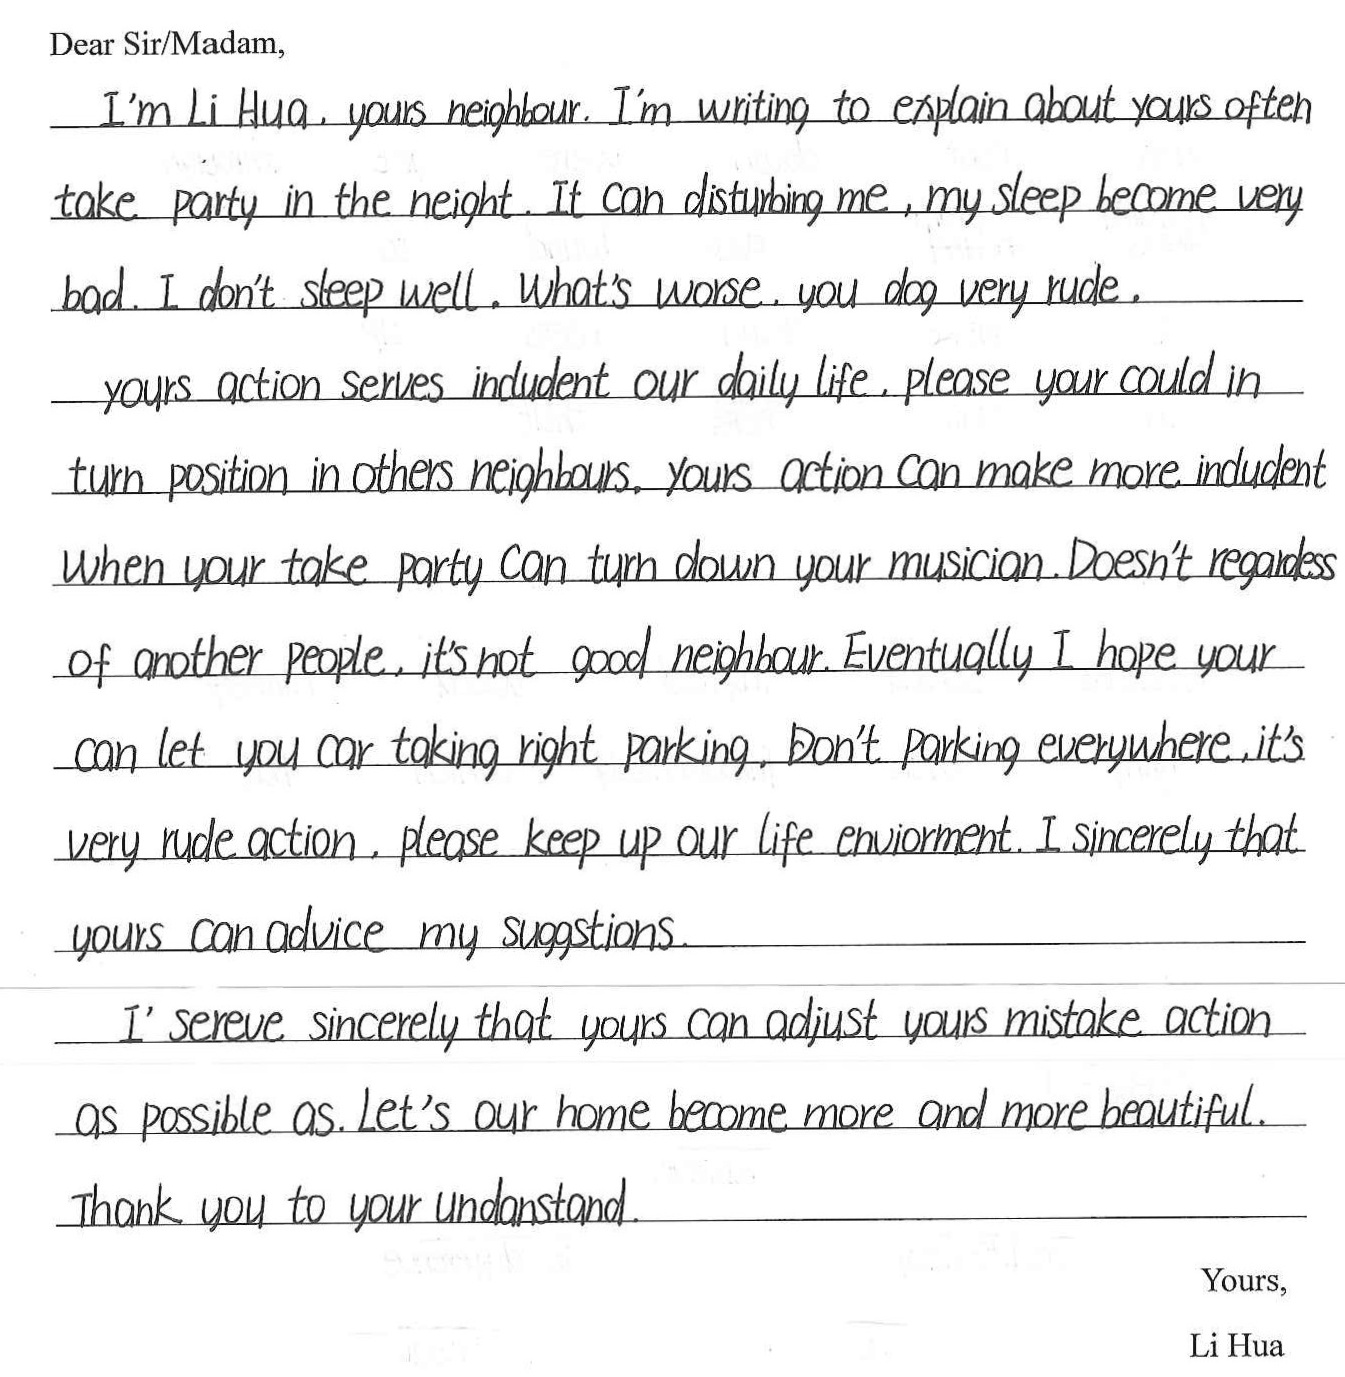 Dear Sir/Madam,
I'm Li Hua, yours neighbour. I'm writing to explain about yours often
take party in the neight. It can disturbing me, my sleep become very
bad. I don't sleep well. What's worse. you dog very rude.
yours action serves indudent our daily life. please your could in
turn position in others neighbours. Yours action can make more indudent
When your take party can turn down your musician. Doesn't regardess
of another people, it's not good neighbour. Eventually I hope your
can let you car taking right parking. Don't parking everywhere, it's
very rude action. please keep up our life enviorment. I sincerely that
yours can advice my suggstions.
I' sereve sincerely that yours can adjust yours mistake action
as possible as. Let's our home become more and more beautiful.
Thank you to your undanstand.
Yours,
Li Hua